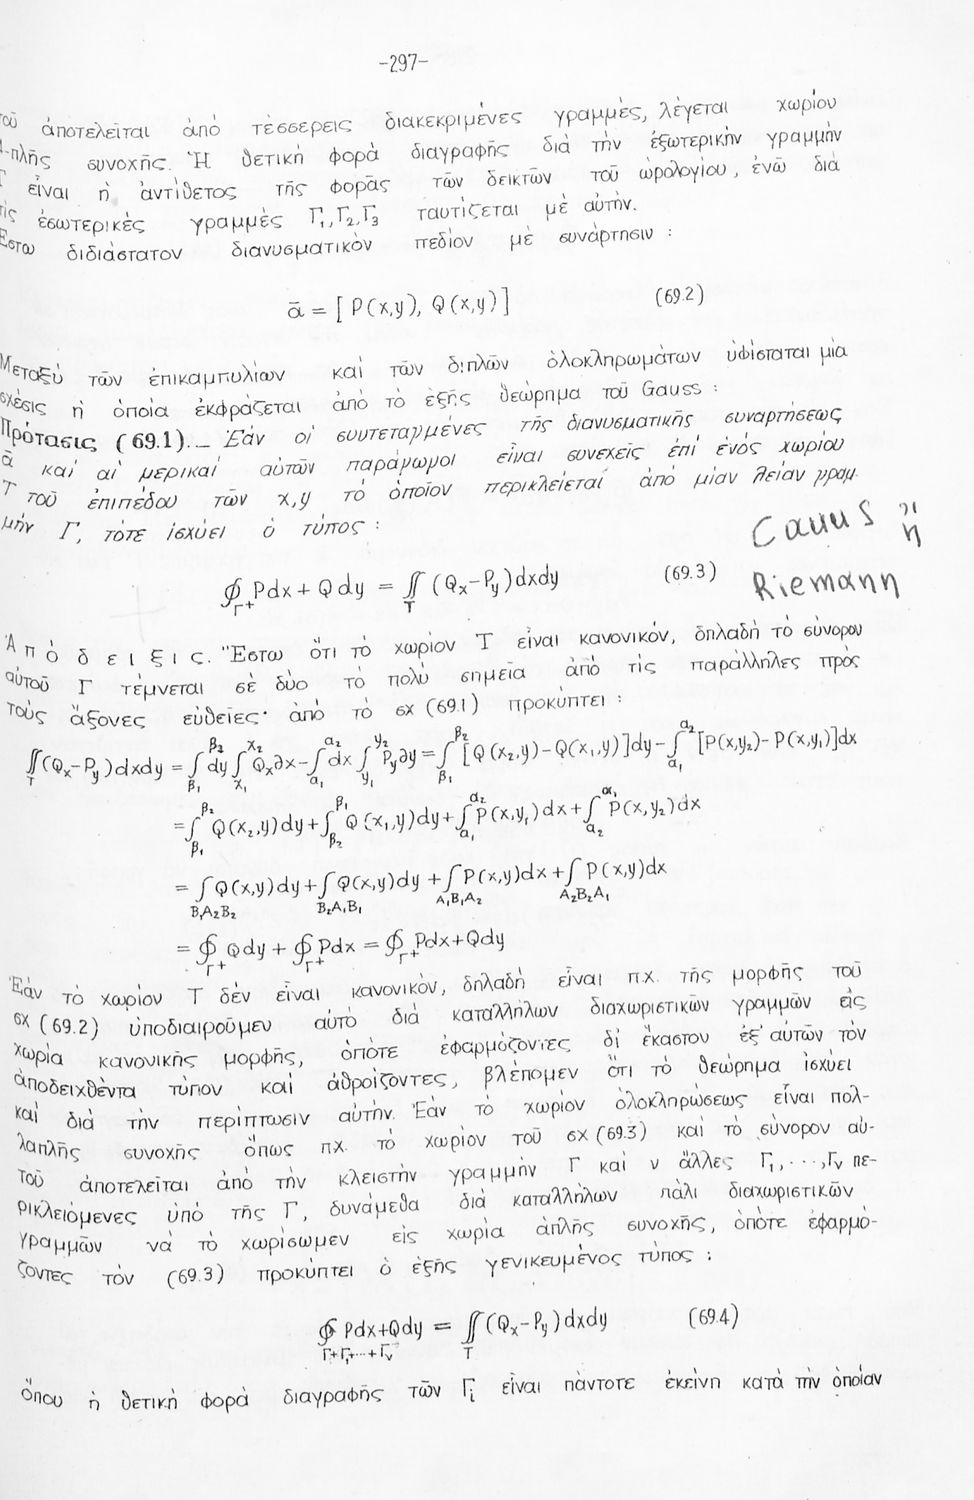 -297-
τοῦ ἀποτελεῖται ἀπό τέσσερεις διακεκριμένες γραμμές, λέγεται χωρίον
4-πλῆς συνοχῆς. Ἡ θετική φορά διαγραφῆς διά τήν ἐξωτερικήν γραμμήν
Γ εἶναι ἡ ἀντίθετος τῆς φορᾶς τῶν δεικτῶν τοῦ ὡρολογίου, ἐνῶ διά
τίς ἐσωτερικές γραμμές Γ₁,Γ₂,Γ₃ ταυτίζεται μέ αὐτήν.
Ἔστω διδιάστατον διανυσματικόν πεδίον μέ συνάρτησιν :
ᾱ = [ P(x,y), Q(x,y)] (69.2)
Μεταξύ τῶν ἐπικαμπυλίων καί τῶν διπλῶν ὁλοκληρωμάτων ὑφίσταται μία
σχέσις ἡ ὁποία ἐκφράζεται ἀπό τό ἑξῆς θεώρημα τοῦ Gauss :
Πρότασις (69.1)._ Ἐάν οἱ συντεταγμένες τῆς διανυσματικῆς συναρτήσεως
ᾱ καί αἱ μερικαί αὐτῶν παράγωγοι εἶναι συνεχεῖς ἐπί ἑνός χωρίου
Τ τοῦ ἐπιπέδου τῶν x,y τό ὁποῖον περικλείεται ἀπό μίαν λείαν γραμ-
μήν Γ, τότε ἰσχύει ὁ τύπος :
Cauus ἤ
∮_Γ+ Pdx + Qdy = ∬_T (Qx-Py)dxdy (69.3)
Riemann
Ἀπόδειξις. Ἔστω ὅτι τό χωρίον Τ εἶναι κανονικόν, δηλαδή τό σύνορον
αὐτοῦ Γ τέμνεται σέ δύο τό πολύ σημεῖα ἀπό τίς παράλληλες πρός
τούς ἄξονες εὐθεῖες· ἀπό τό σχ (69.1) προκύπτει :
∬_T (Qx-Py)dxdy = ∫_β₁^β₂ dy ∫_x₁^x₂ Qx∂x - ∫_α₁^α₂ dx ∫_y₁^y₂ Py∂y = ∫_β₁^β₂ [Q(x₂,y)-Q(x₁,y)]dy - ∫_α₁^α₂ [P(x,y₂)-P(x,y₁)]dx
= ∫_β₁^β₂ Q(x₂,y)dy + ∫_β₂^β₁ Q(x₁,y)dy + ∫_α₁^α₂ P(x,y₁)dx + ∫_α₂^α₁ P(x,y₂)dx
= ∫_B₁A₂B₂ Q(x,y)dy + ∫_B₂A₁B₁ Q(x,y)dy + ∫_A₁B₁A₂ P(x,y)dx + ∫_A₂B₂A₁ P(x,y)dx
= ∮_Γ+ Qdy + ∮_Γ+ Pdx = ∮_Γ+ Pdx+Qdy
Ἐάν τό χωρίον Τ δέν εἶναι κανονικόν, δηλαδή εἶναι π.χ. τῆς μορφῆς τοῦ
σχ (69.2) ὑποδιαιροῦμεν αὐτό διά καταλλήλων διαχωριστικῶν γραμμῶν εἰς
χωρία κανονικῆς μορφῆς, ὁπότε ἐφαρμόζοντες δι' ἕκαστον ἐξ' αὐτῶν τόν
ἀποδειχθέντα τύπον καί ἀθροίζοντες, βλέπομεν ὅτι τό θεώρημα ἰσχύει
καί διά τήν περίπτωσιν αὐτήν. Ἐάν τό χωρίον ὁλοκληρώσεως εἶναι πολ-
λαπλῆς συνοχῆς ὅπως π.χ. τό χωρίον τοῦ σχ (69.3) καί τό σύνορον αὐ-
τοῦ ἀποτελεῖται ἀπό τήν κλειστήν γραμμήν Γ καί ν ἄλλες Γ₁,...,Γν πε-
ρικλειόμενες ὑπό τῆς Γ, δυνάμεθα διά καταλλήλων πάλι διαχωριστικῶν
γραμμῶν νά τό χωρίσωμεν εἰς χωρία ἁπλῆς συνοχῆς, ὁπότε ἐφαρμό-
ζοντες τόν (69.3) προκύπτει ὁ ἑξῆς γενικευμένος τύπος :
∮_Γ+Γ₁+...+Γν Pdx+Qdy = ∬_T (Qx-Py)dxdy (69.4)
ὅπου ἡ θετική φορά διαγραφῆς τῶν Γi εἶναι πάντοτε ἐκείνη κατά τήν ὁποίαν